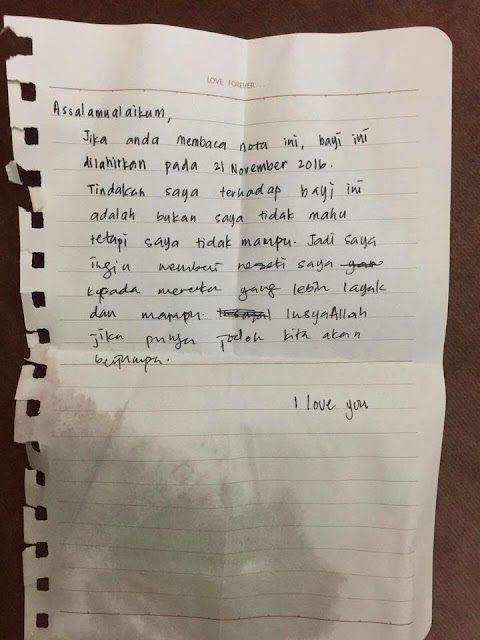 LOVE FOREVER
Assalamualaikum,
Jika anda membaca nota ini, bayi ini
dilahirkan pada 21 November 2016.
Tindakan saya terhadap bayi ini
adalah bukan saya tidak mahu
tetapi saya tidak mampu. Jadi saya
ingin memberi rezeki saya
kepada mereka yang lebih layak
dan mampu. InsyaAllah
jika punya jodoh kita akan
berjumpa.
I love you